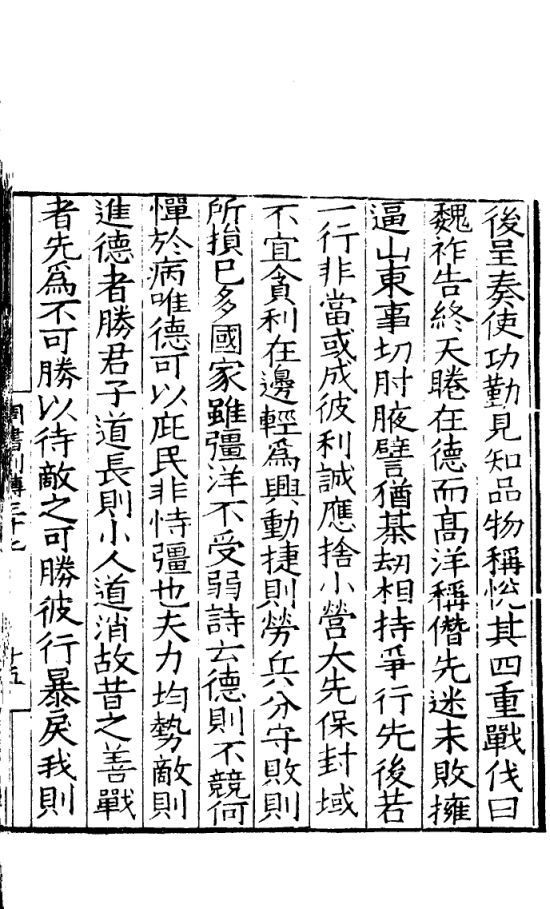 後呈奏使功勤見知品物稱恱其四重戰伐曰
魏祚告終天睠在德而髙洋稱僭先迷未敗擁
逼山東事切肘腋譬猶棊劫相持爭行先後若
一行非當或成彼利誠應捨小營大先保封域
不宜貪利在邊輕爲興動捷則勞兵分守敗則
所損已多國家雖彊洋不受弱詩云德則不競何
憚於病唯德可以庇民非恃彊也夫力均勢敵則
進德者勝君子道長則小人道消故昔之善戰
者先爲不可勝以待敵之可勝彼行暴戾我則
周書列傳三十七
十五